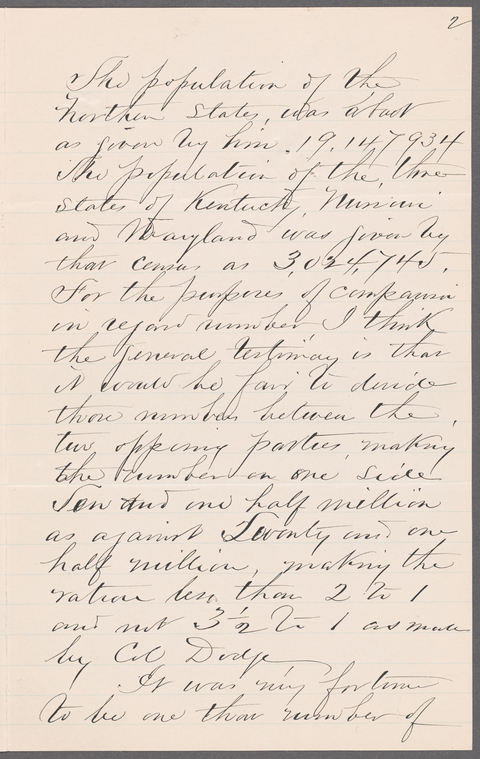 2
The population of the
Northern States, was about
as given by him. 19,147934
The population of the three
States of Kentucky, Missouri
and Maryland was given by
that census as 3,024,745.
For the purposes of comparison
in regard number, I think
the general testimony is that
it would be fair to divide
those numbers between the
two opposing parties, making
the number on one side
Ten and one half million
as against Twenty and one
half million, making the
ration less than 2 to 1
and not 3½ to 1 as made
by Col Dodge
It was my fortune
to be one that number of